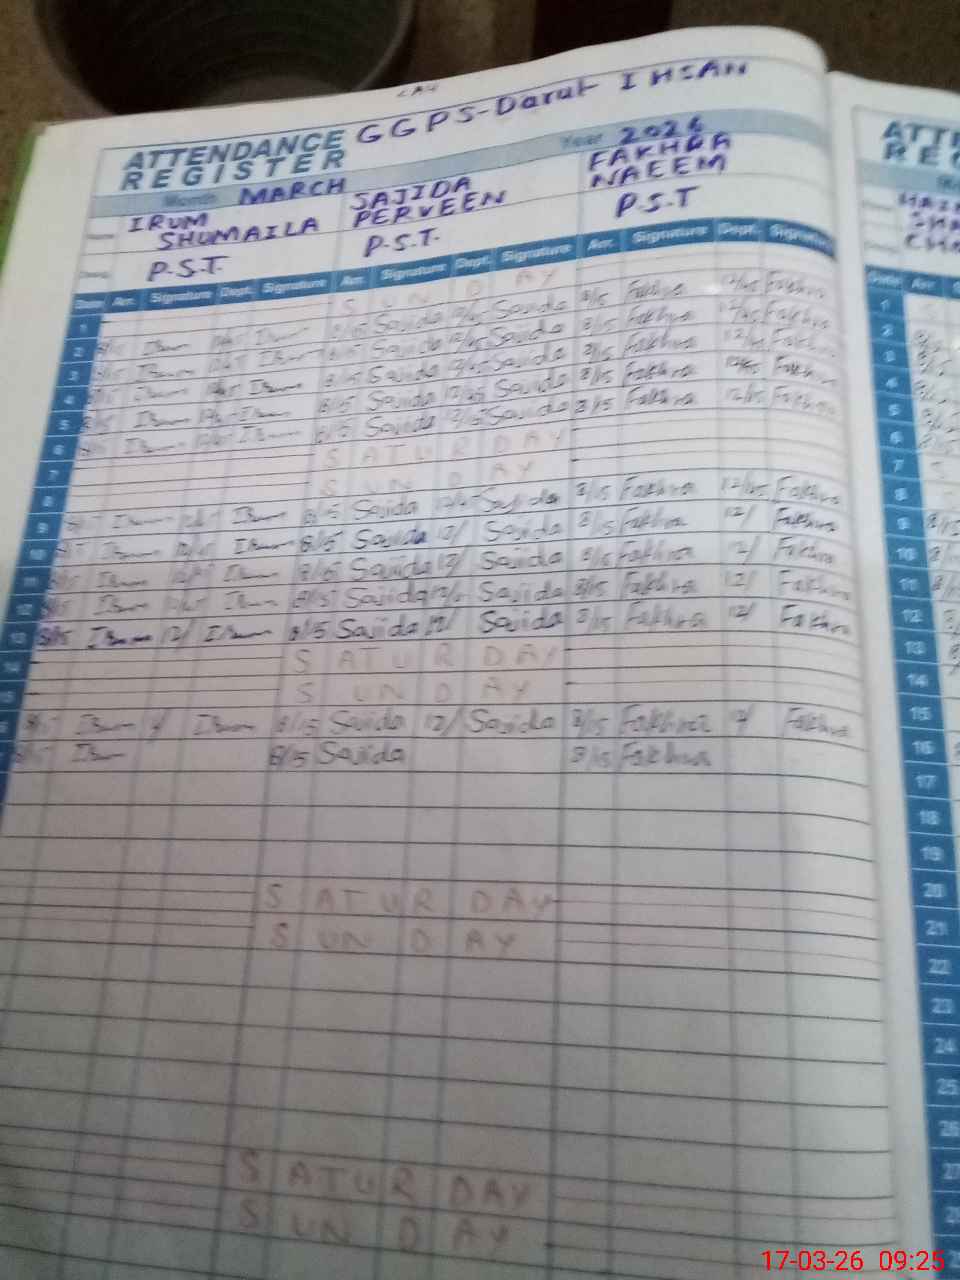 GGPS-Darul IHSAN
ATTENDANCE REGISTER
Month MARCH Year 2026
Name IRUM SHUMAILA SAJIDA PERVEEN FAKHRA NAEEM
P.S.T. P.S.T. P.S.T
Date Arr. Signature Dept. Signature Arr. Signature Dept. Signature Arr. Signature Dept. Signature
1 SUNDAY
2 8/15 Irum 12/45 Irum 8/15 Sajida 12/45 Sajida 8/15 Fakhra 12/45 Fakhra
3 8/15 Irum 12/45 Irum 8/15 Sajida 12/45 Sajida 8/15 Fakhra 12/45 Fakhra
4 8/15 Irum 12/45 Irum 8/15 Sajida 12/45 Sajida 8/15 Fakhra 12/45 Fakhra
5 8/15 Irum 12/45 Irum 8/15 Sajida 12/45 Sajida 8/15 Fakhra 12/45 Fakhra
6 8/15 Irum 12/45 Irum 8/15 Sajida 12/45 Sajida 8/15 Fakhra 12/45 Fakhra
7 SATURDAY
8 SUNDAY
9 8/15 Irum 12/45 Irum 8/15 Sajida 12/45 Sajida 8/15 Fakhra 12/45 Fakhra
10 8/15 Irum 12/45 Irum 8/15 Sajida 12/ Sajida 8/15 Fakhra 12/ Fakhra
11 8/15 Irum 12/45 Irum 8/15 Sajida 12/ Sajida 8/15 Fakhra 12/ Fakhra
12 8/15 Irum 12/45 Irum 8/15 Sajida 12/ Sajida 8/15 Fakhra 12/ Fakhra
13 8/15 Irum 12/ Irum 8/15 Sajida 12/ Sajida 8/15 Fakhra 12/ Fakhra
14 SATURDAY
15 SUNDAY
8/15 Irum Irum 8/15 Sajida 12/ Sajida 8/15 Fakhra 12/ Fakhra
8/15 Irum 8/15 Sajida 8/15 Fakhra
SATURDAY
SUNDAY
SATURDAY
SUNDAY
Date Arr
1
2
3
4
5
6
7
8
9
10
11
12
13
14
15
16
17
18
19
20
21
22
23
24
25
26
27
17-03-26 09:25